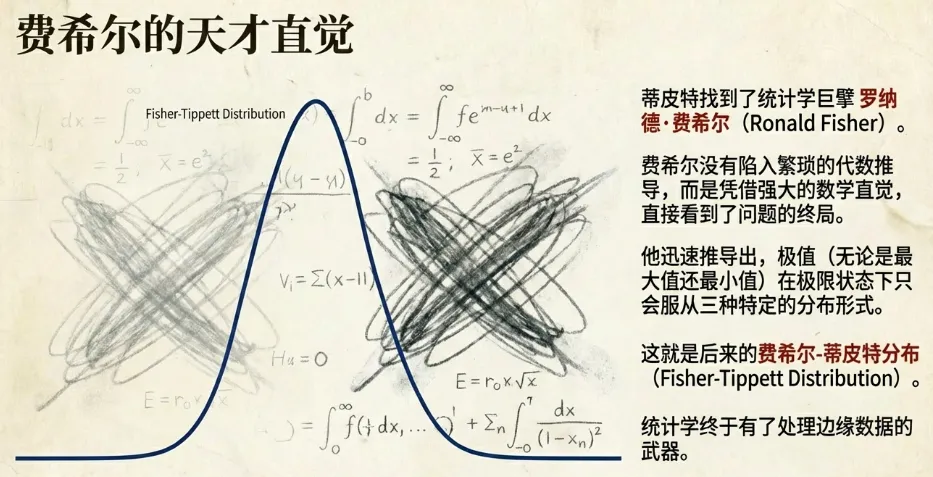 费希尔的天才直觉
Fisher-Tippett Distribution
dx = ∫
∫ b -0 dx = ∫ ∞ -∞ fe^(m-u+1) dx
= 1/2 ; x̄ = e²
= 1/2 ; x̄ = e²
V_i = Σ(x-11)
Hu = 0
E = r₀ x √x
E = r₀
蒂皮特找到了统计学巨擘 罗纳
德·费希尔（Ronald Fisher）。
费希尔没有陷入繁琐的代数推
导，而是凭借强大的数学直觉，
直接看到了问题的终局。
他迅速推导出，极值（无论是最
大值还最小值）在极限状态下只
会服从三种特定的分布形式。
这就是后来的费希尔-蒂皮特分布
（Fisher-Tippett Distribution）。
统计学终于有了处理边缘数据的
武器。